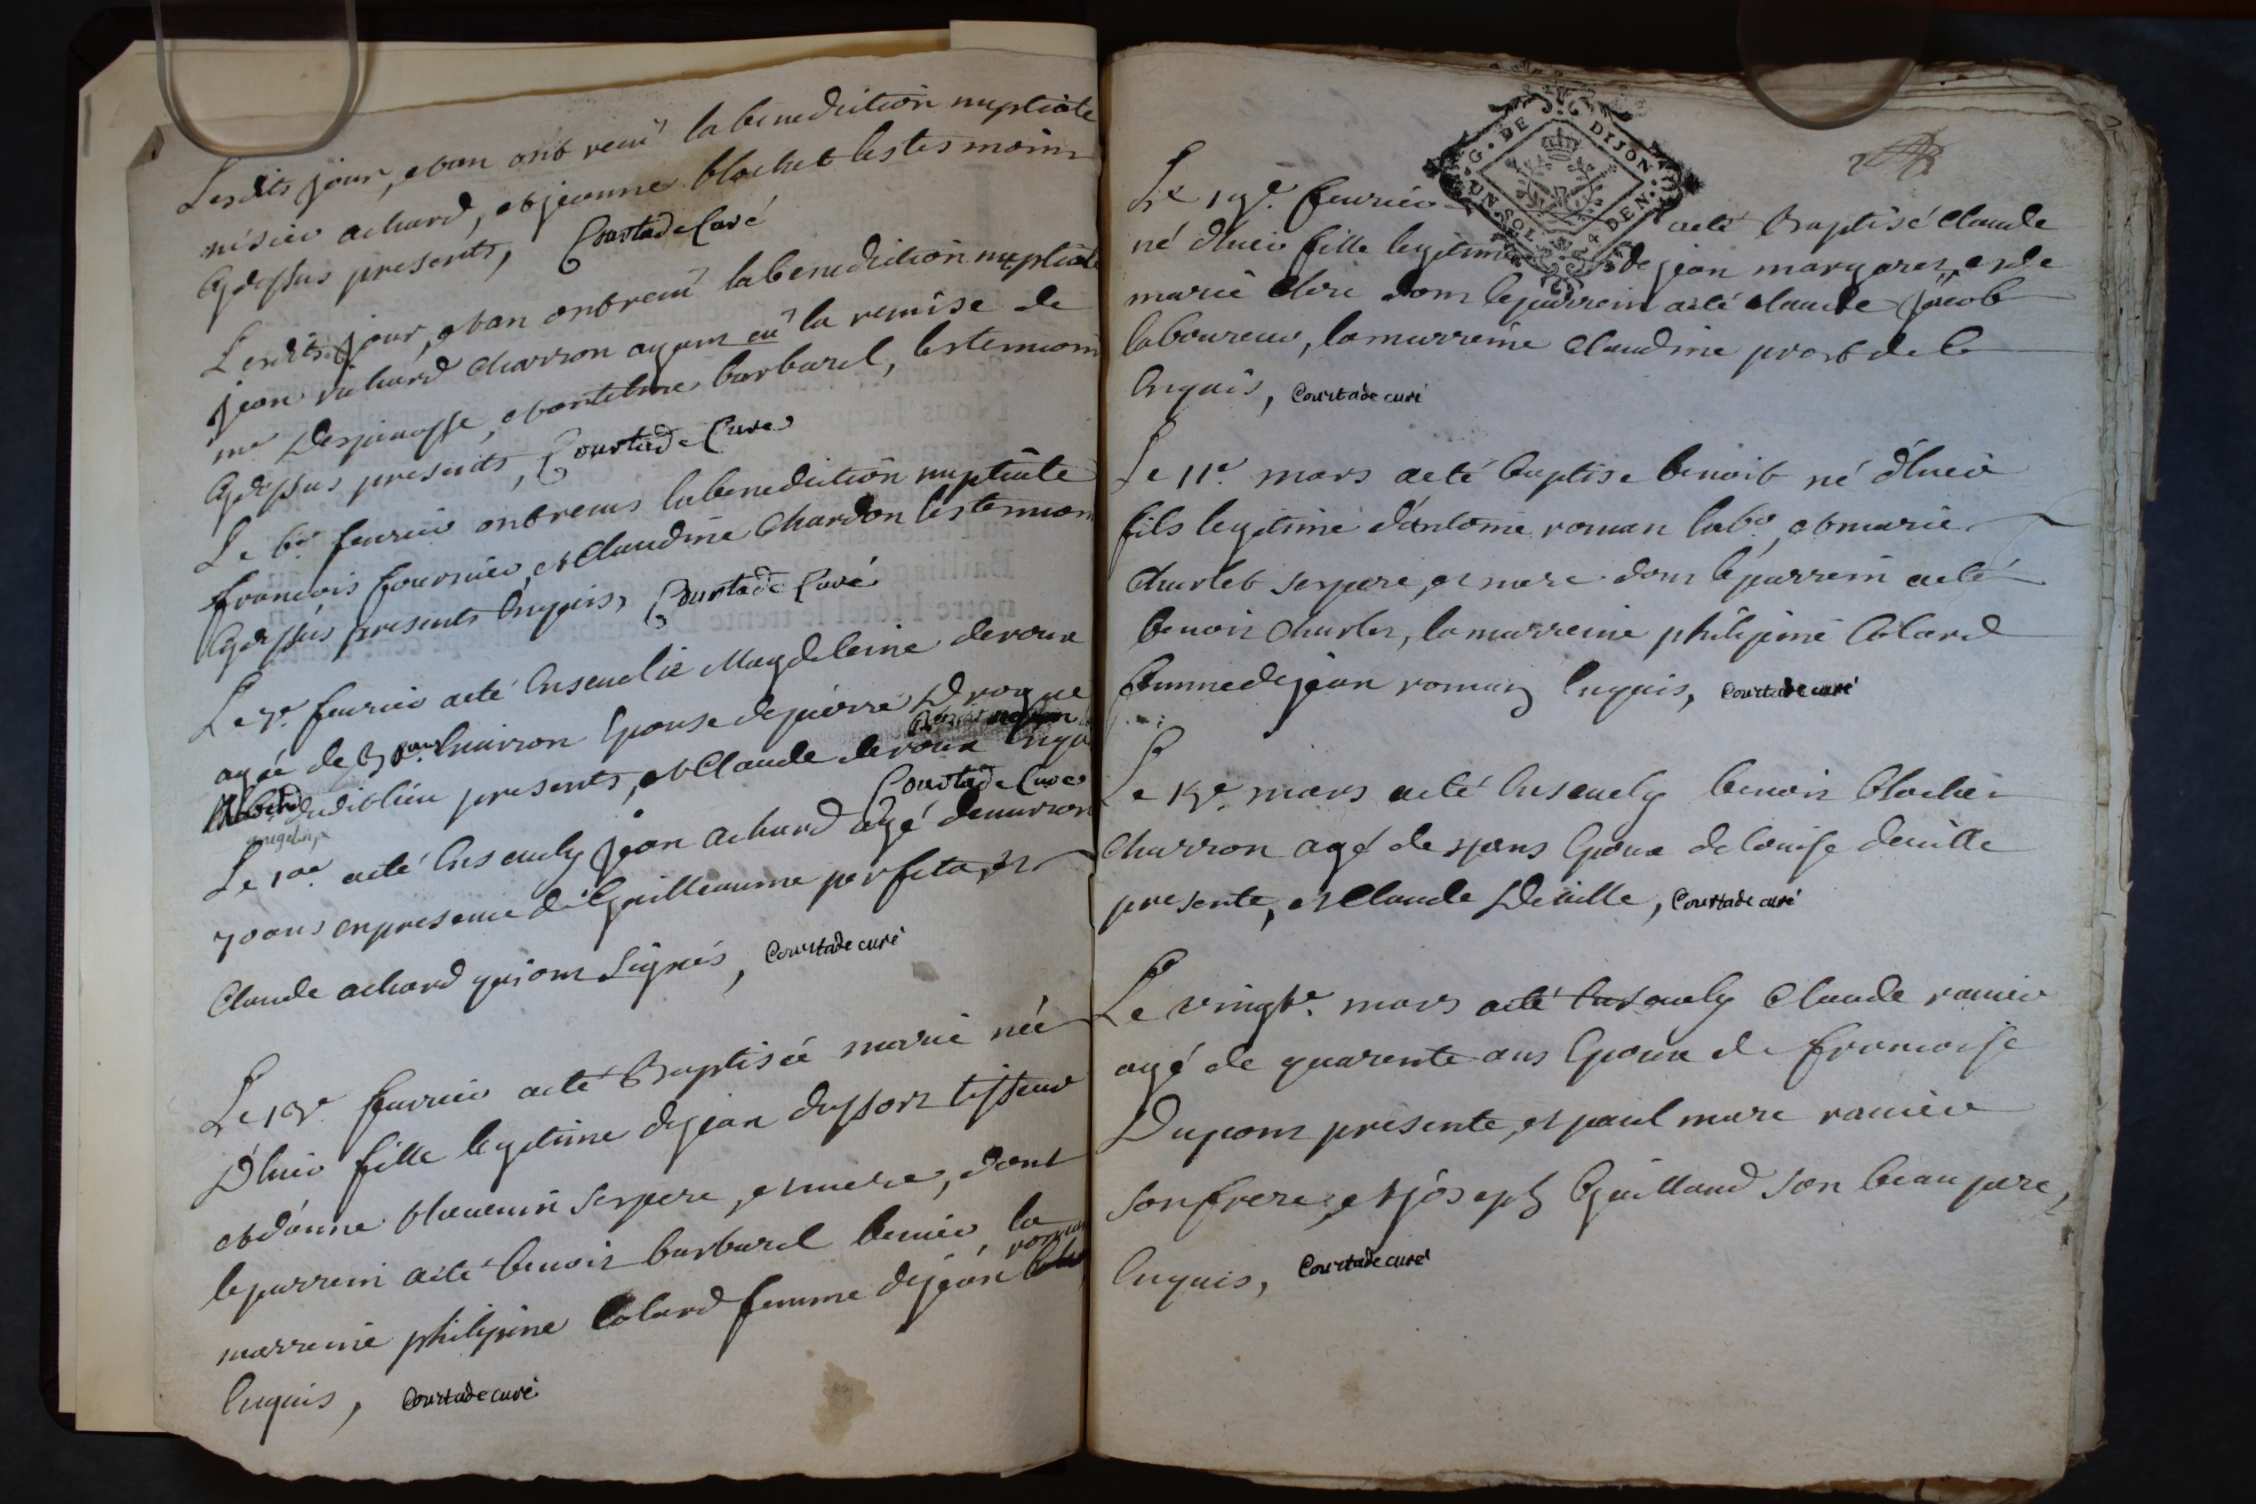 Lesdits jour, et an ont receu la benediction nuptiale
achard, et jeanne blochet les tesmoins
cy dessus presents, Courtade Curé
Lesdits jour, et an ont receu la benediction nuptiale
jean richard charron ayant eu la remise de
mr Despinasse, et antoine barbaret, les temoins
cy dessus presents, Courtade Curé
Le 6e fevrier ont receus la benediction nuptiale
francois fournier, et Claudine Chardon les temoins
cy dessus presents enquis, Courtade Curé
Le 7e fevrier a eté ensevelie Magdeleine deroux
agée de ans environ epouse de pierre Drogue
dudit lieu presents, et Claude deroux enquis
Courtade Curé
Le 10e a eté ensevely jean achard agé d'environ
70 ans en presence de Guilleaume perfeta, et
Claude achard qui ont signés, Courtade curé
Le 13e fevrier a eté Baptisée marie née
D'hier fille legitime de jean dussort tisseur
et d'anne thevenin ses pere, et mere, dont
le parrein a eté benoit barbaret la
marreine philipine Colard femme de jean roman
Enquis, Courtade curé
G. DE DIJON
UN SOL 4 DEN.
Le 19e fevrier a eté Baptisé Claude
né d'hier fille legitime de jean margarer, et de
marie dont le parrein a eté claude jacob
laboureur, la marreine Claudine prost de le
Enquis, Courtade curé
Le 11e mars a eté baptise benoit né d'hier
fils legitime d'antoine roman labr, et marie
Charlet ses pere, et mere dont le parrein a eté
benoit Charles, la marreine philipine Colard
femme de jean roman Enquis, Courtade curé
Le 13e mars a eté Ensevely benoit blochet
charron agé de ans Epoux de louise deville
presente, et Claude Deville, Courtade curé
Le vingte mars a eté Ensevely Claude ranier
agé de quarente ans Epoux de francoise
Dupont presente, et paul marc ranier
son frere, et joseph Guillaud son beau pere,
Enquis, Courtade curé